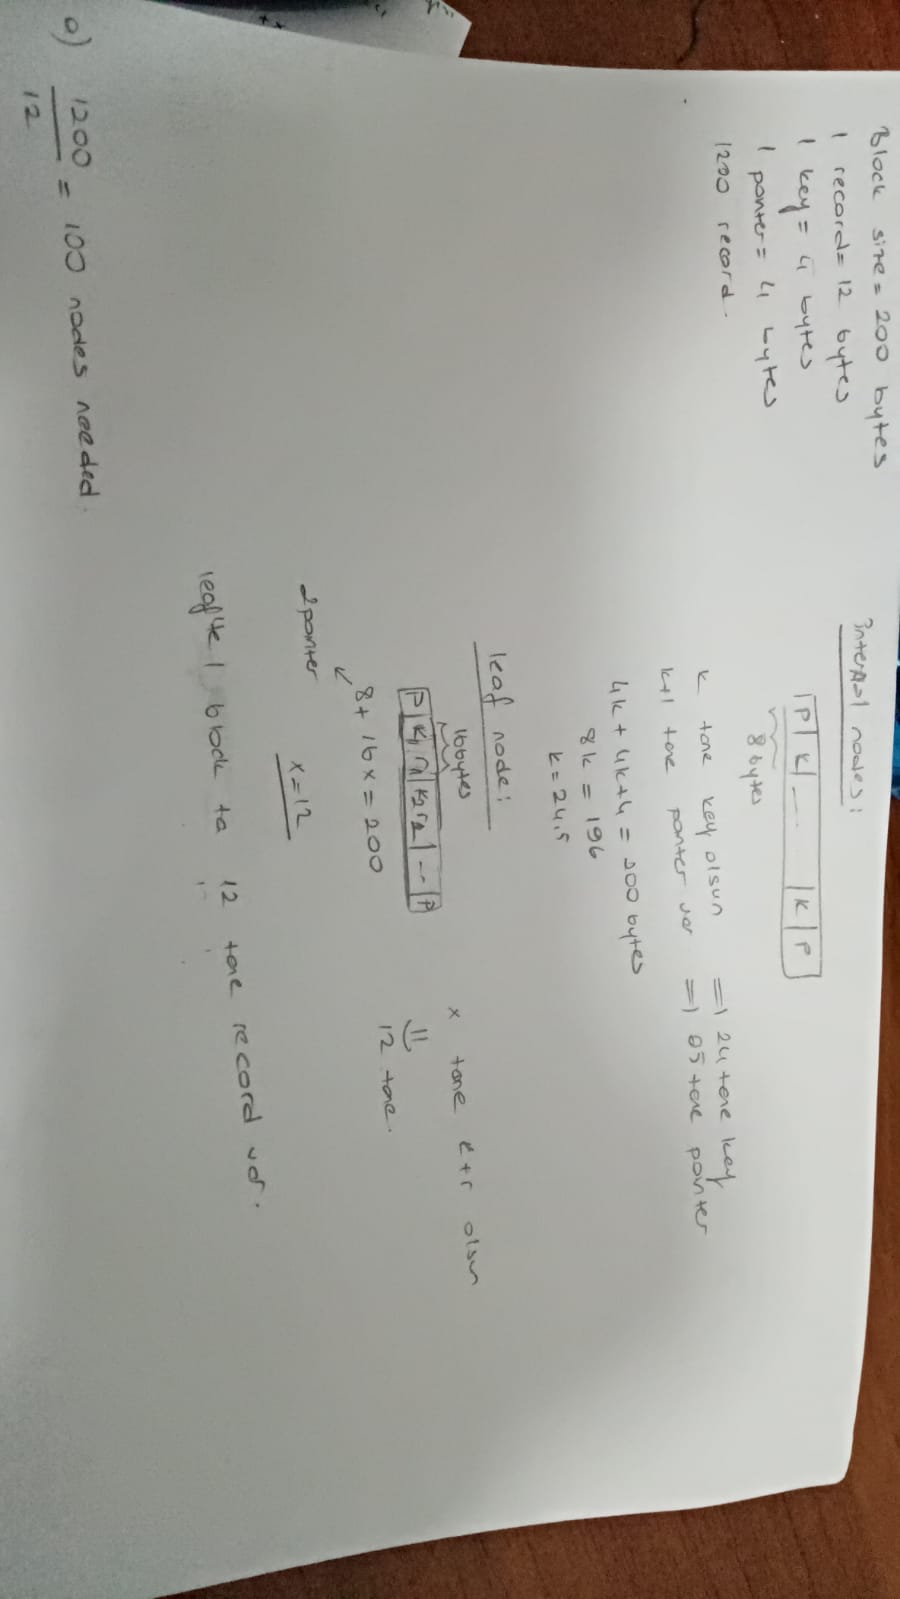 Block size = 200 bytes
1 record = 12 bytes
1 key = 4 bytes
1 ponter = 4 bytes
1200 record.
Internal nodes:
P K ---- K P
8 bytes
k tane key olsun => 24 tane key
k+1 tane ponter var => 25 tane pointer
4k + 4k+4 = 200 bytes
8k = 196
k = 24,5
leaf node:
16 bytes
P K1 r1 K2 r2 --- P
x tane k+r olsun
12 tane.
8 + 16x = 200
2 pointer
x = 12
leaf'te 1 block ta 12 tane record var.
a) 1200 / 12 = 100 nodes needed.